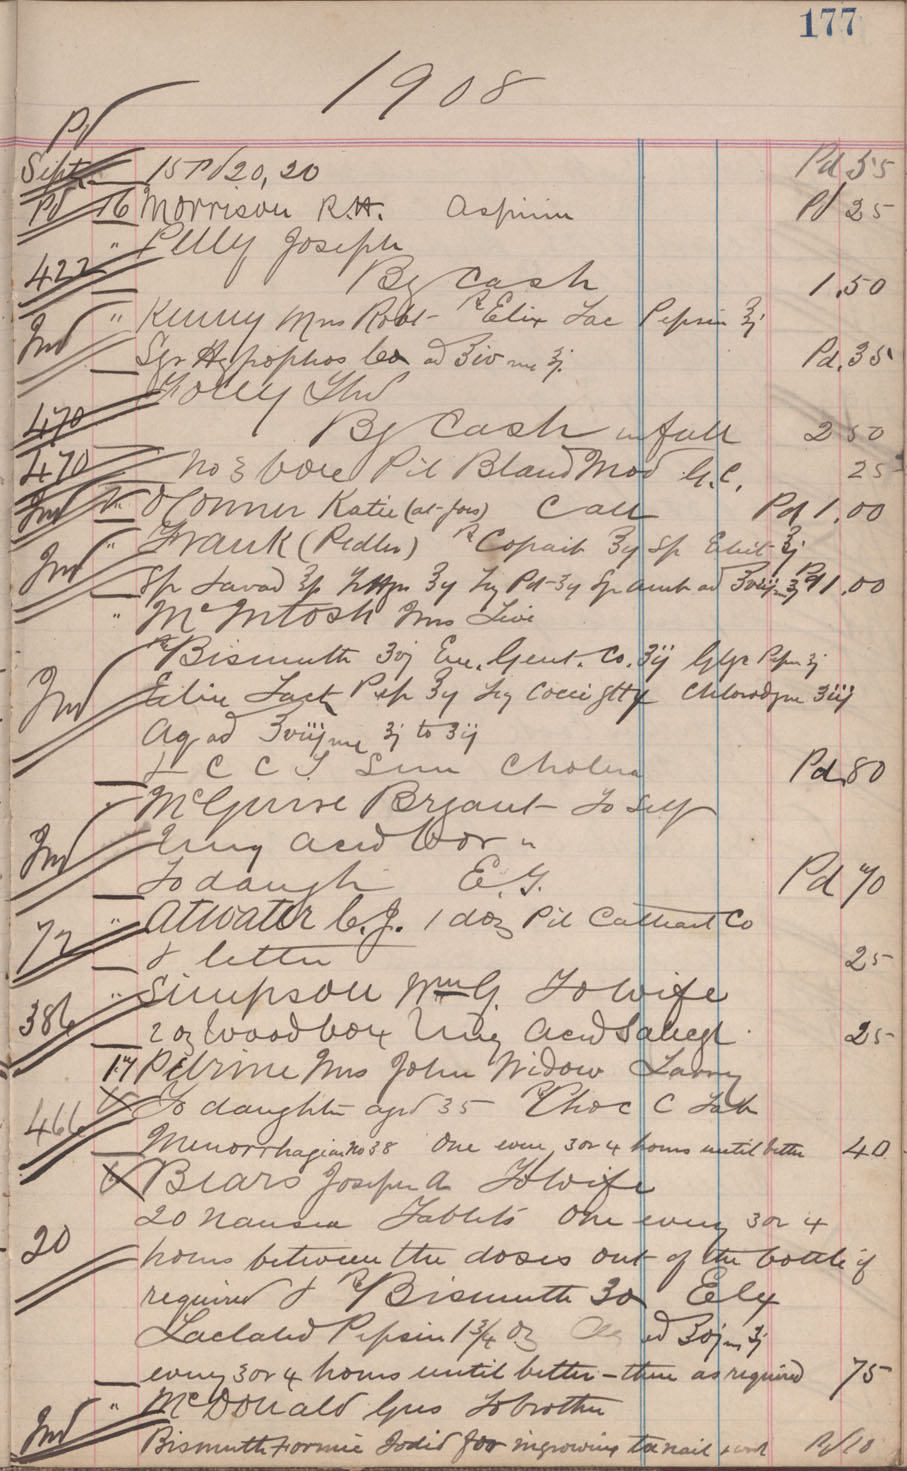 177
1908
Pd
Sept. 15 Pd 20, 20 Pd 55
Pd 16 Morrison R.H. Aspirin Pd 25
" Pelly Joseph
422 By Cash 1.50
" Kenny Mrs Robt ℞ Elix Lac Pepsin ʒj
Ind Syr Hypophos Co ad ʒiv ʒj. Pd. 35
Folly Thd
470 By Cash in full 2 50
470 No 3 box Pil Blaud Mod G.C. 25
Ind " O'Connor Katie (at Joes) Call Pd 1.00
" Frank (Pedler) ℞ Copaib ʒij Sp Ether ʒj
Ind Sp Lavad Pd 1.00
" McIntosh Mrs Levi
℞ Bismuth Gent. Co. ʒij Glyc Pepsin ʒj
Ind Elix Lact Pep ʒij Chlorodyne ʒiij
Aq ad ʒviij ʒj to ʒij
& C C T Sun Cholera Pd. 80
McGuire Bryant To Self
Ind Ung Acid Bor "
To daugh E.G. Pd 70
" Atwater C.J. 1 doz Pil Cathart Co
72 & letter 25
" Simpson Wm G. To Wife
386 2 oz Woodbox Ung Acid Salicyl 25
17 Petrine Mrs John Widow
To daughter aged 35 ℞ Choc C Tab
466 Menorrhagia No 38 One every 3 or 4 hours until better 40
Bears Joseph A To Wife
20 Nausea Tablets One every 3 or 4
20 hours between the doses out of the bottle if
required & ℞ Bismuth Elix
Lactated Pepsin 1 3/4 oz ad ʒj
every 3 or 4 hours until better – then as required 75
" McDonald Gus To brother
Ind Bismuth Formic Iodid for ingrowing toenail Pd 10